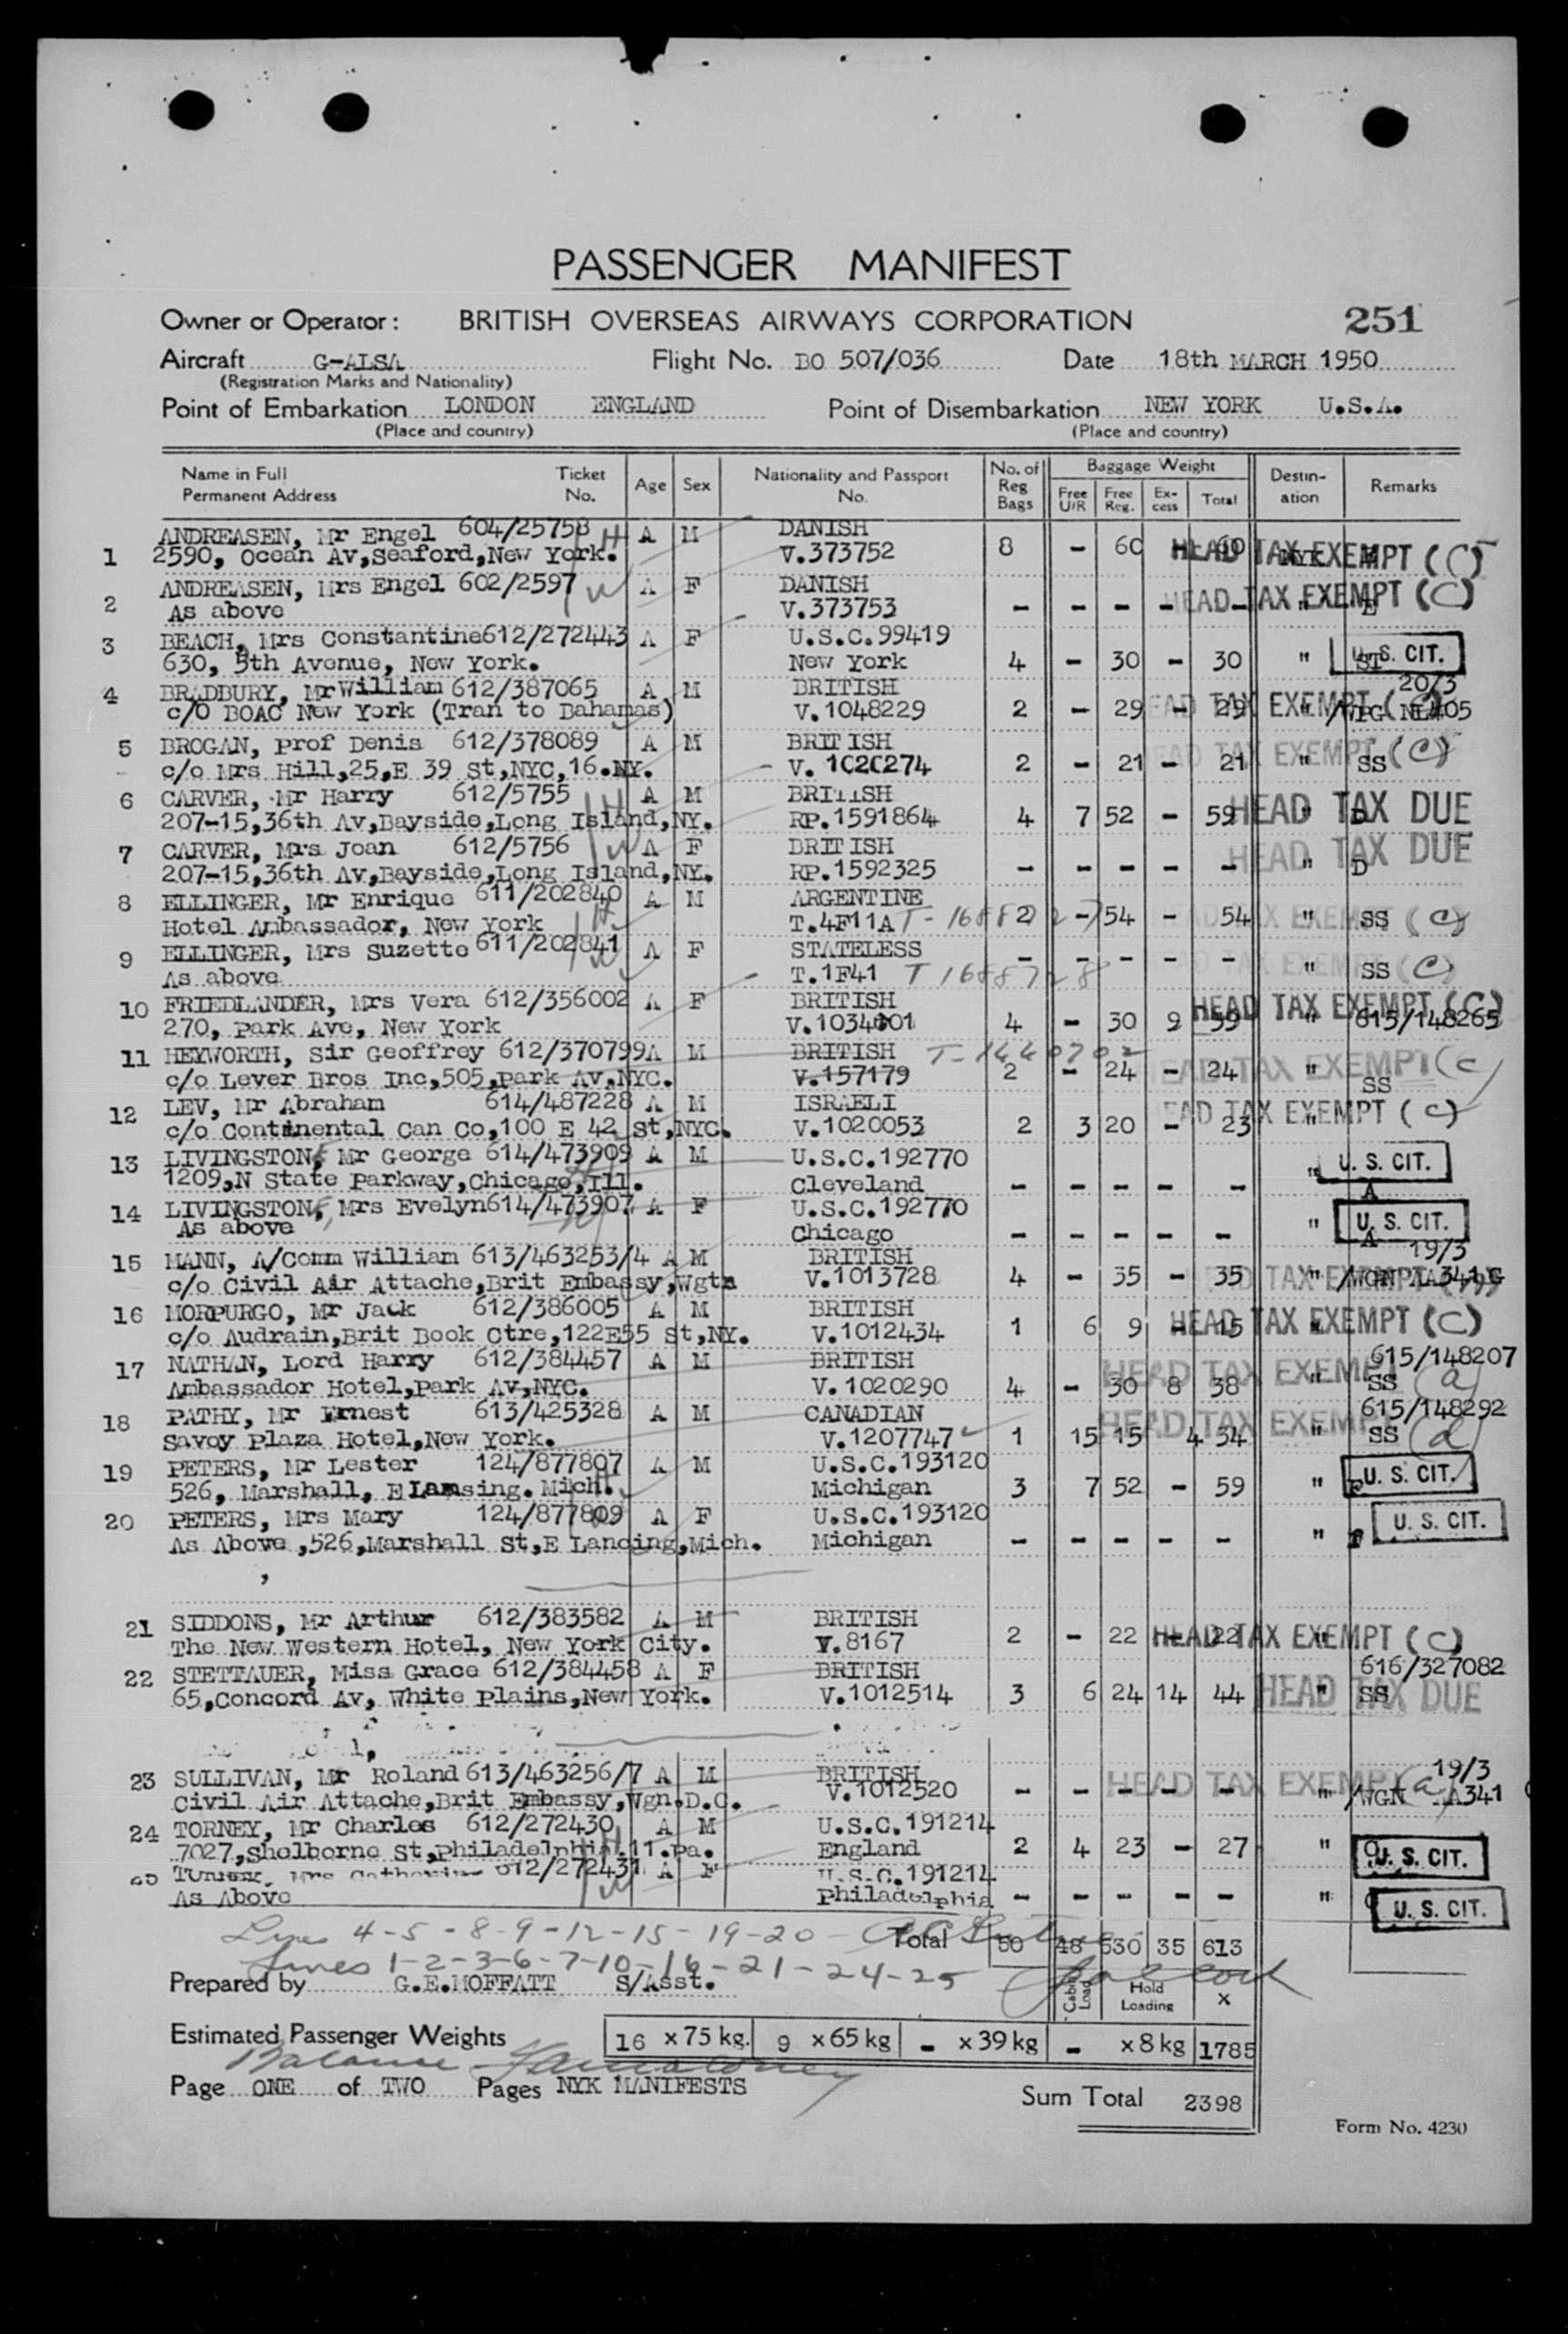 PASSENGER MANIFEST
Owner or Operator: BRITISH OVERSEAS AIRWAYS CORPORATION 251
Aircraft G-ALSA Flight No. BO 507/036 Date 18th MARCH 1950
(Registration Marks and Nationality)
Point of Embarkation LONDON ENGLAND Point of Disembarkation NEW YORK U.S.A.
(Place and country) (Place and country)
Name in Full Ticket Age Sex Nationality and Passport No. of Reg Bags Baggage Weight Destin-ation Remarks
Permanent Address No. No. Free U/R Free Reg. Ex-cess Total
ANDREASEN, Mr Engel 604/25758 H A M DANISH
1 2590, Ocean Av,Seaford,New York. V.373752 8 - 60 60 HEAD TAX EXEMPT (C)
ANDREASEN, Mrs Engel 602/2597 W A F DANISH HEAD TAX EXEMPT (C)
2 As above V.373753 - - - - - " E
3 BEACH, Mrs Constantine 612/272443 A F U.S.C.99419
630, 5th Avenue, New York. New York 4 - 30 - 30 " ST U.S. CIT.
4 BRADBURY, Mr William 612/387065 A M BRITISH 20/3
c/o BOAC New York (Tran to Bahamas) V.1048229 2 - 29 - 29 HEAD TAX EXEMPT
5 BROGAN, Prof Denis 612/378089 A M BRITISH HEAD TAX EXEMPT (C)
c/o Mrs Hill,25,E 39 St,NYC,16.NY. V. 1020274 2 - 21 - 21 " SS
6 CARVER, Mr Harry 612/5755 H A M BRITISH
207-15,36th Av,Bayside,Long Island,NY. RP.1591864 4 7 52 - 59 " D HEAD TAX DUE
7 CARVER, Mrs Joan 612/5756 W A F BRITISH HEAD TAX DUE
207-15,36th Av,Bayside,Long Island,NY. RP.1592325 - - - - - " D
8 ELLINGER, Mr Enrique 611/202840 A M ARGENTINE
Hotel Ambassador, New York H T.4F11A 2 - 54 - 54 " SS HEAD TAX EXEMPT (C)
9 ELLINGER, Mrs Suzette 611/202841 W A F STATELESS - - - - - HEAD TAX EXEMPT (C)
As above T.1F41 T 1688728 " SS
10 FRIEDLANDER, Mrs Vera 612/356002 A F BRITISH HEAD TAX EXEMPT (C)
270, Park Ave, New York V.1034001 4 - 30 9 39 " 615/148265
11 HEYWORTH, Sir Geoffrey 612/370799 A M BRITISH
c/o Lever Bros Inc,505,Park Av.NYC. V.157179 2 - 24 - 24 " SS HEAD TAX EXEMPT (C)
12 LEV, Mr Abraham 614/487228 A M ISRAELI HEAD TAX EXEMPT (C)
c/o Continental Can Co,100 E 42 St,NYC. V.1020053 2 3 20 - 23 "
13 LIVINGSTONE, Mr George 614/473909 A M U.S.C.192770 U. S. CIT.
1209,N State Parkway,Chicago,Ill. H Cleveland - - - - - " A
14 LIVINGSTONE, Mrs Evelyn 614/473907 A F U.S.C.192770 U. S. CIT.
As above W Chicago - - - - - " A
15 MANN, A/Comm William 613/463253/4 A M BRITISH 19/3
c/o Civil Air Attache,Brit Embassy,Wgtn V.1013728 4 - 35 - 35 " HEAD TAX EXEMPT
16 MORPURGO, Mr Jack 612/386005 A M BRITISH
c/o Audrain,Brit Book Ctre,122E55 St,NY. V.1012434 1 6 9 - 15 " HEAD TAX EXEMPT (C)
17 NATHAN, Lord Harry 612/384457 A M BRITISH HEAD TAX EXEMPT 615/148207
Ambassador Hotel,Park Av,NYC. V.1020290 4 - 30 8 38 " SS (a)
18 PATHY, Mr Ernest 613/425328 A M CANADIAN HEAD TAX EXEMPT 615/148292
Savoy Plaza Hotel,New York. V.1207747 1 15 15 4 34 " SS (d)
19 PETERS, Mr Lester 124/877807 A M U.S.C.193120
526, Marshall, E Lansing. Mich. H Michigan 3 7 52 - 59 " U. S. CIT.
20 PETERS, Mrs Mary 124/877809 A F U.S.C.193120 U. S. CIT.
As Above ,526,Marshall St,E Lancing,Mich. Michigan - - - - - "
21 SIDDONS, Mr Arthur 612/383582 A M BRITISH
The New Western Hotel, New York City. V.8167 2 - 22 - 22 " HEAD TAX EXEMPT (C)
22 STETTAUER, Miss Grace 612/384458 A F BRITISH 616/327082
65,Concord Av, White Plains,New York. V.1012514 3 6 24 14 44 " SS HEAD TAX DUE
23 SULLIVAN, Mr Roland 613/463256/7 A M BRITISH 19/3
Civil Air Attache,Brit Embassy,Wgn.D.C. V.1012520 - - - - - " HEAD TAX EXEMPT (a) /WGN AA341
24 TORNEY, Mr Charles 612/272430 A M U.S.C.191214
7027,Shelborne St,Philadelphia.11.Pa. H England 2 4 23 - 27 " U. S. CIT.
25 Mrs 612/272431 A F U.S.C.191214
As Above W Philadelphia - - - - - " U. S. CIT.
Lines 4-5-8-9-12-15-19-20- Total 50 48 530 35 613
Lines 1-2-3-6-7-10-16-21-24-25
Prepared by G.E.MOFFATT S/Asst. Cabin Load Hold Loading X
Estimated Passenger Weights 16 x 75 kg. 9 x 65 kg - x 39 kg - x 8 kg 1785
Balance
Page ONE of TWO Pages NYK MANIFESTS Sum Total 2398
Form No. 4230